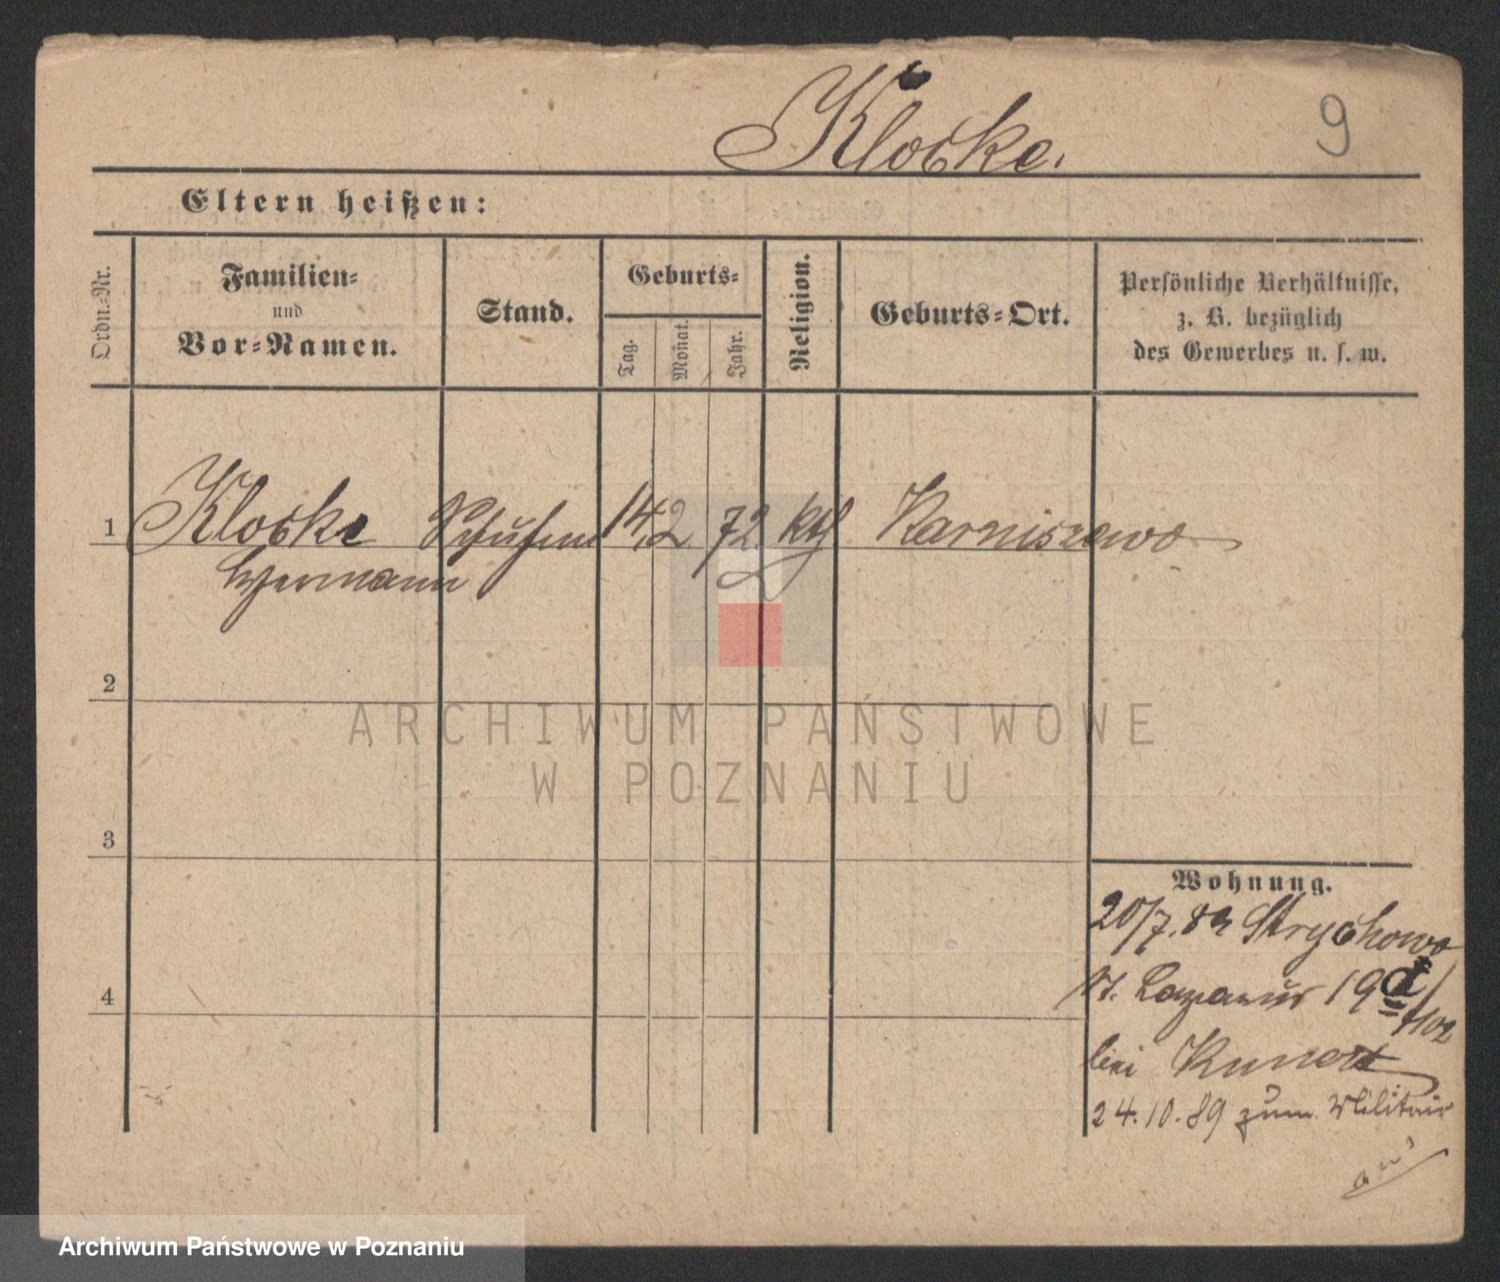 Klocke.
9
Eltern heißen:
Ordn.-Nr.
Familien-
und
Vor-Namen.
Stand.
Geburts-
Tag.
Monat.
Jahr.
Religion.
Geburts-Ort.
Persönliche Verhältnisse,
z. B. bezüglich
des Gewerbes u. s. w.
1 Klocke Schuhm 14. 2. 72. kth Karniszewo
Hermann
2
3
4
Wohnung.
20/7. 89 Strychowo
St. Lazarus 19
bei Kunert
24.10.89 zum Militair
ARCHIWUM PAŃSTWOWE
W POZNANIU
Archiwum Państwowe w Poznaniu